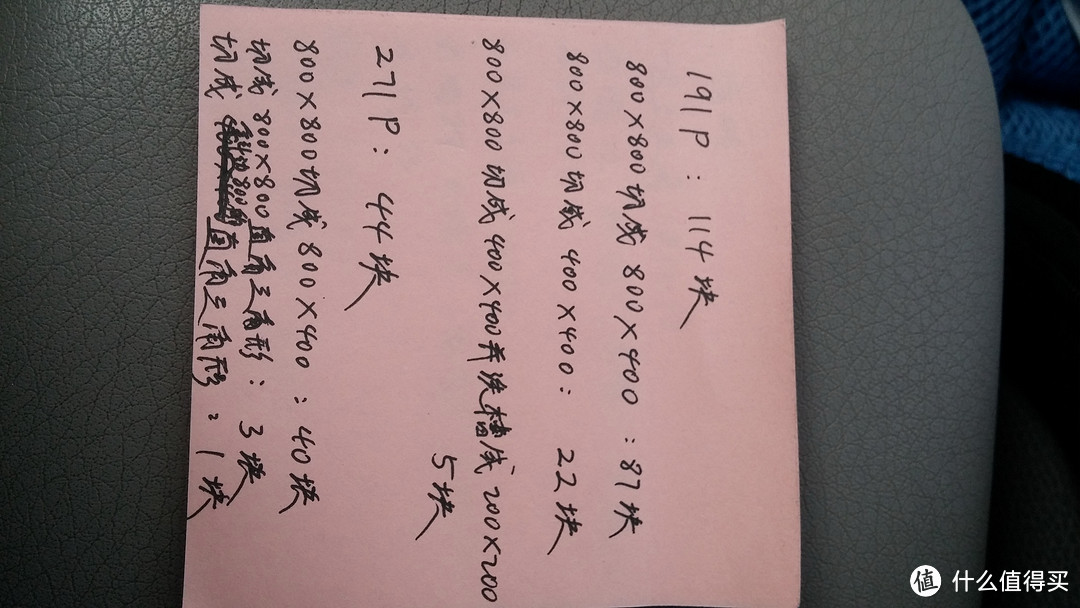 191P：114块
800×800切成800×400：87块
800×800切成400×400：22块
800×800切成400×400并洗槽成200×200
5块
271P：44块
800×800切成800×400：40块
切成800×800直角三角形：3块
切成直角三角形：1块
值 什么值得买